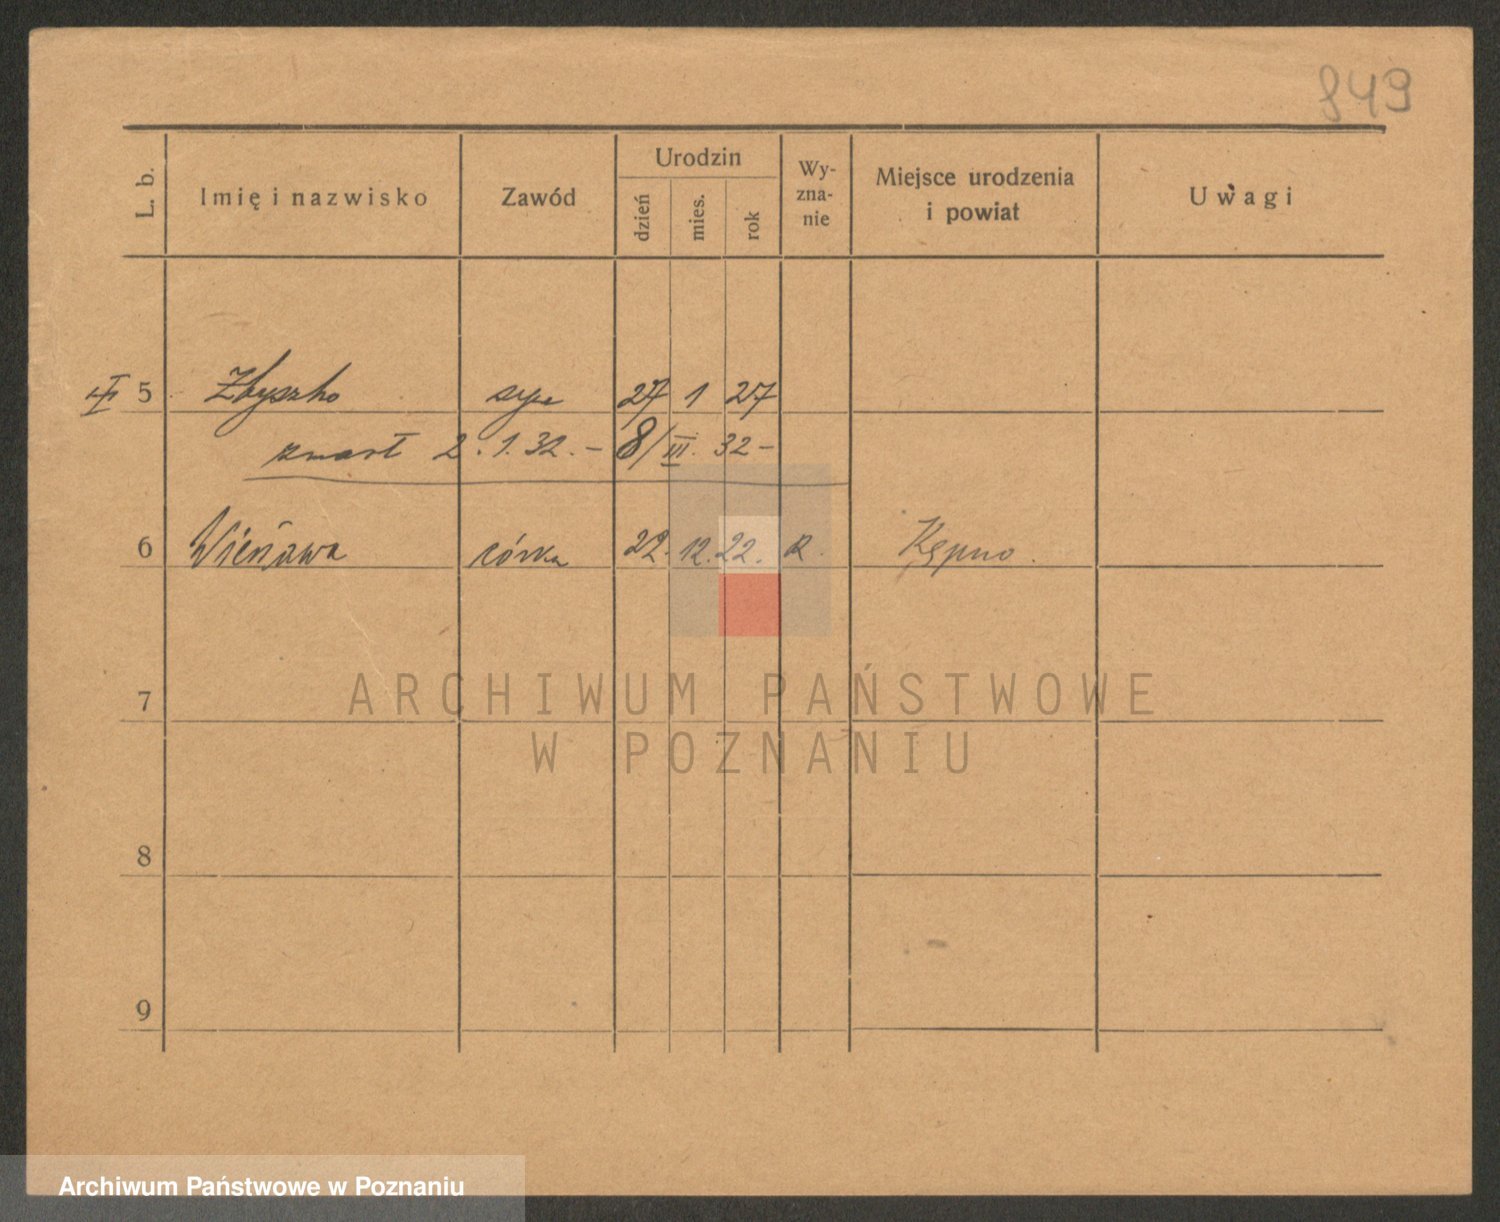 849
L. b. Imię i nazwisko Zawód Urodzin dzień mies. rok Wy-zna-nie Miejsce urodzenia i powiat Uwagi
5 Zbyszko syn 27 1 27
zmarł 2.1.32.– 8/III. 32–
6 Wieńawa córka 22. 12. 22. R. Kępno.
7
ARCHIWUM PAŃSTWOWE
W POZNANIU
8
9
Archiwum Państwowe w Poznaniu